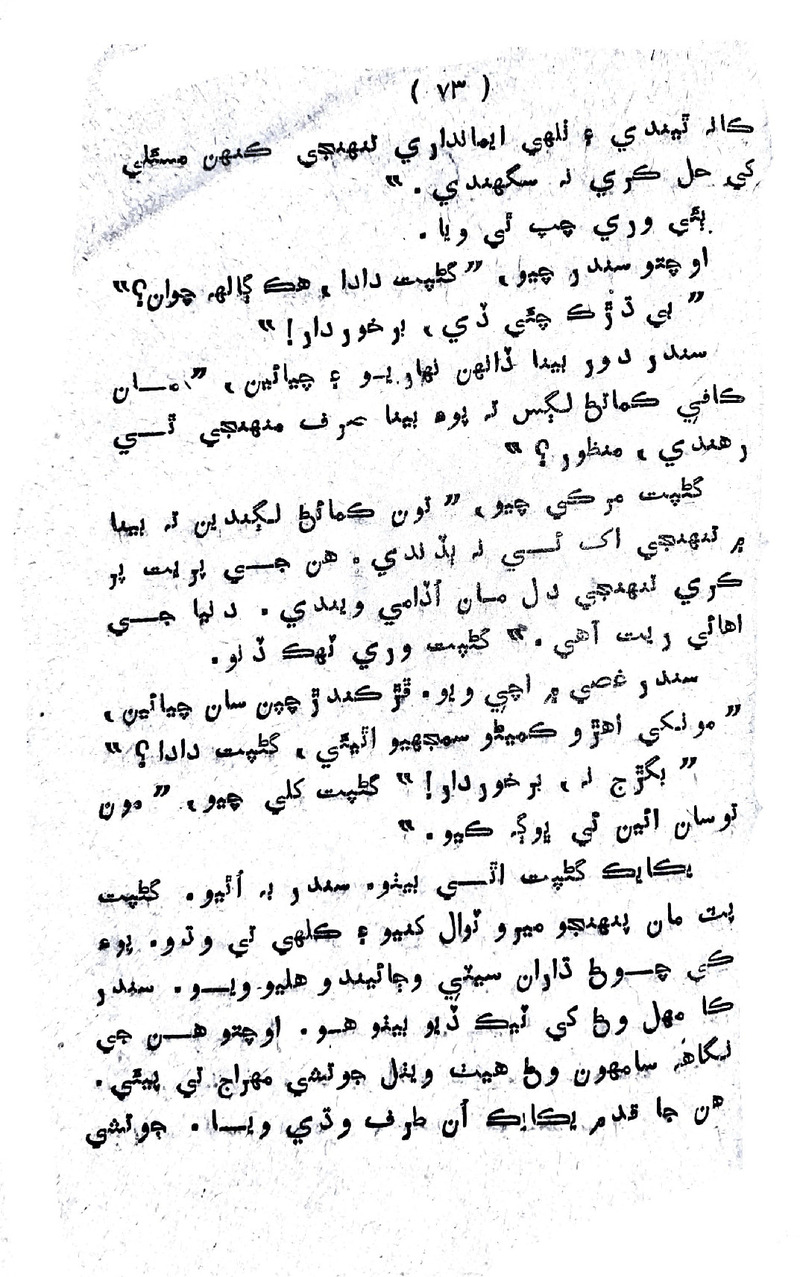 ( ٧٣ )
ڪانہ ٿيندي ۽ نلهي ايمانداري تنهنجي ڪنهن مسئلي
کي حل ڪري نہ سگهندي . “
ٻئي وري چپ ٿي ويا .
اوچتو سندر چيو، ” گڻپت دادا، هڪ ڳالهہ چوان؟ “
” بي ڌڙڪ چئي ڏي، برخوردار! “
سندر دور بينا ڏانهن نهاريو ۽ چيائين، ” مان
ڪافي ڪمائڻ لڳس تہ پوءِ بينا صرف منهنجي ٿي
رهندي، منظور؟ “
گڻپت مرڪي چيو، ” تون ڪمائڻ لڳندين تہ بينا
۾ تنهنجي اک ئي نہ ٻڏندي . هن جي پريت پر
ڪري تنهنجي دل مان اُڏامي ويندي . دنيا جي
اهائي ريت آهي . “ گڻپت وري ٽهڪ ڏنو .
سندر غصي ۾ اچي ويو . ڦڙڪندڙ چپن سان چيائين،
” مونکي اهڙو ڪميڻو سمجهيو اٿيئي، گڻپت دادا؟ “
” بگڙج نہ، برخوردار! “ گڻپت کلي چيو، ” مون
توسان ائين ئي ڀوڳ ڪيو . “
يڪايڪ گڻپت اٿي بيٺو . سندر بہ اُٿيو . گڻپت
پٽ مان پنهنجو ميرو ٽوال کنيو ۽ ڪلهي تي وڌو . پوءِ
ڪي چوڻ ڌاران سيٽي وڄائيندو هليو ويو . سندر
ڪا مهل وڻ کي ٽيڪ ڏيو بيٺو هو . اوچتو هن جي
نگاهہ سامهون وڻ هيٺ ويٺل جوتشي مهراج تي پيئي .
هن جا قدم يڪايڪ اُن طرف وڌي ويا . جوتشي